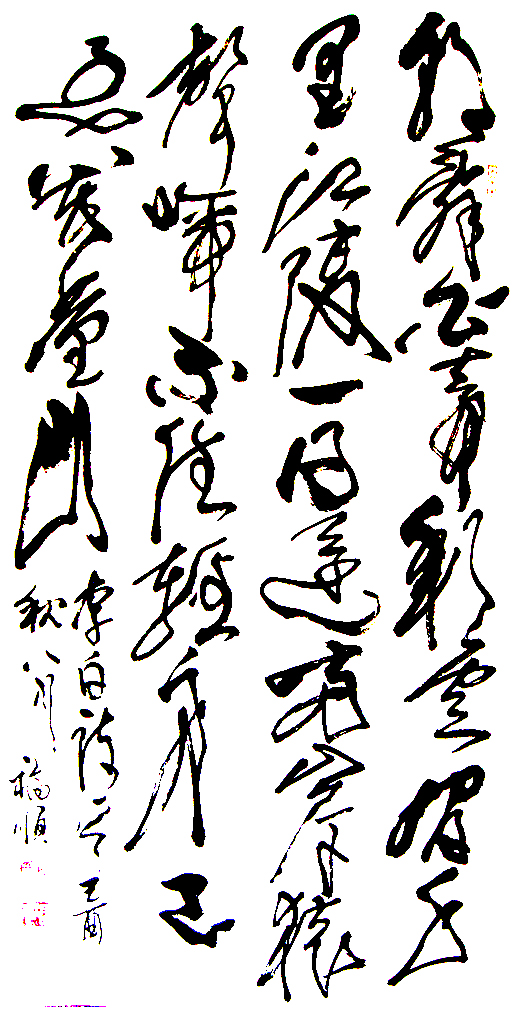 朝辭白帝彩雲間千
里江陵一日還兩岸猿
聲啼不住輕舟已
過萬重山 李白詩 酉
秋八月 福順